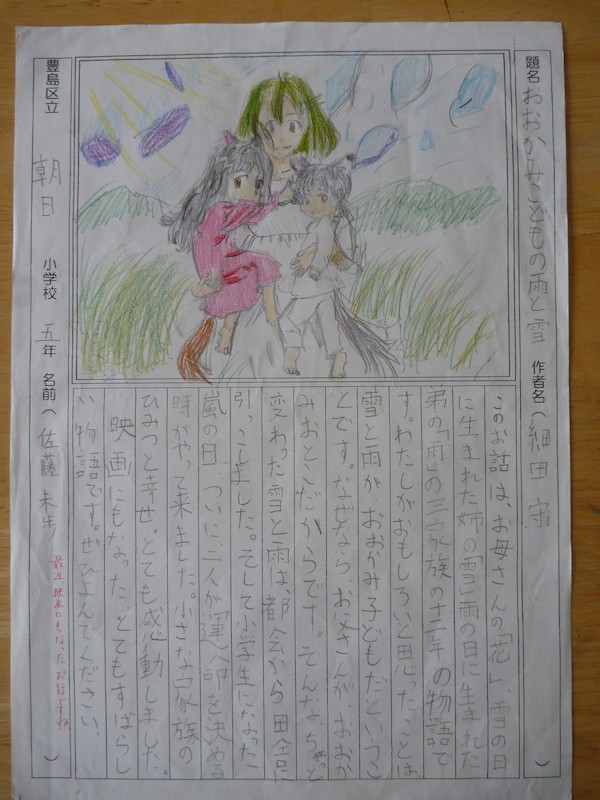 題名 おおかみこどもの雨と雪 作者名（細田 守）
このお話は、お母さんの「花」、雪の日
に生まれた姉の「雪」雨の日に生まれた
弟の「雨」の三家族の十二年の物語で
す。わたしがおもしろいと思ったことは
雪と雨が、おおかみ子どもだというこ
とです。なぜなら、お父さんが、おおか
みおとこだからです。そんなちょっと
変わった雪と雨は、都会から田舎に
引っこしました。そして小学生になった
嵐の日、ついに二人が「運命を決める
時がやって来ました。小さな家族の
ひみつと幸せ。とても感動しました。
映画にもなった、とてもすばらし
い物語です。ぜひよんでください。
豊島区立 朝日 小学校 五年 名前（佐藤 未歩）
最近、映画にもなったお話ですね